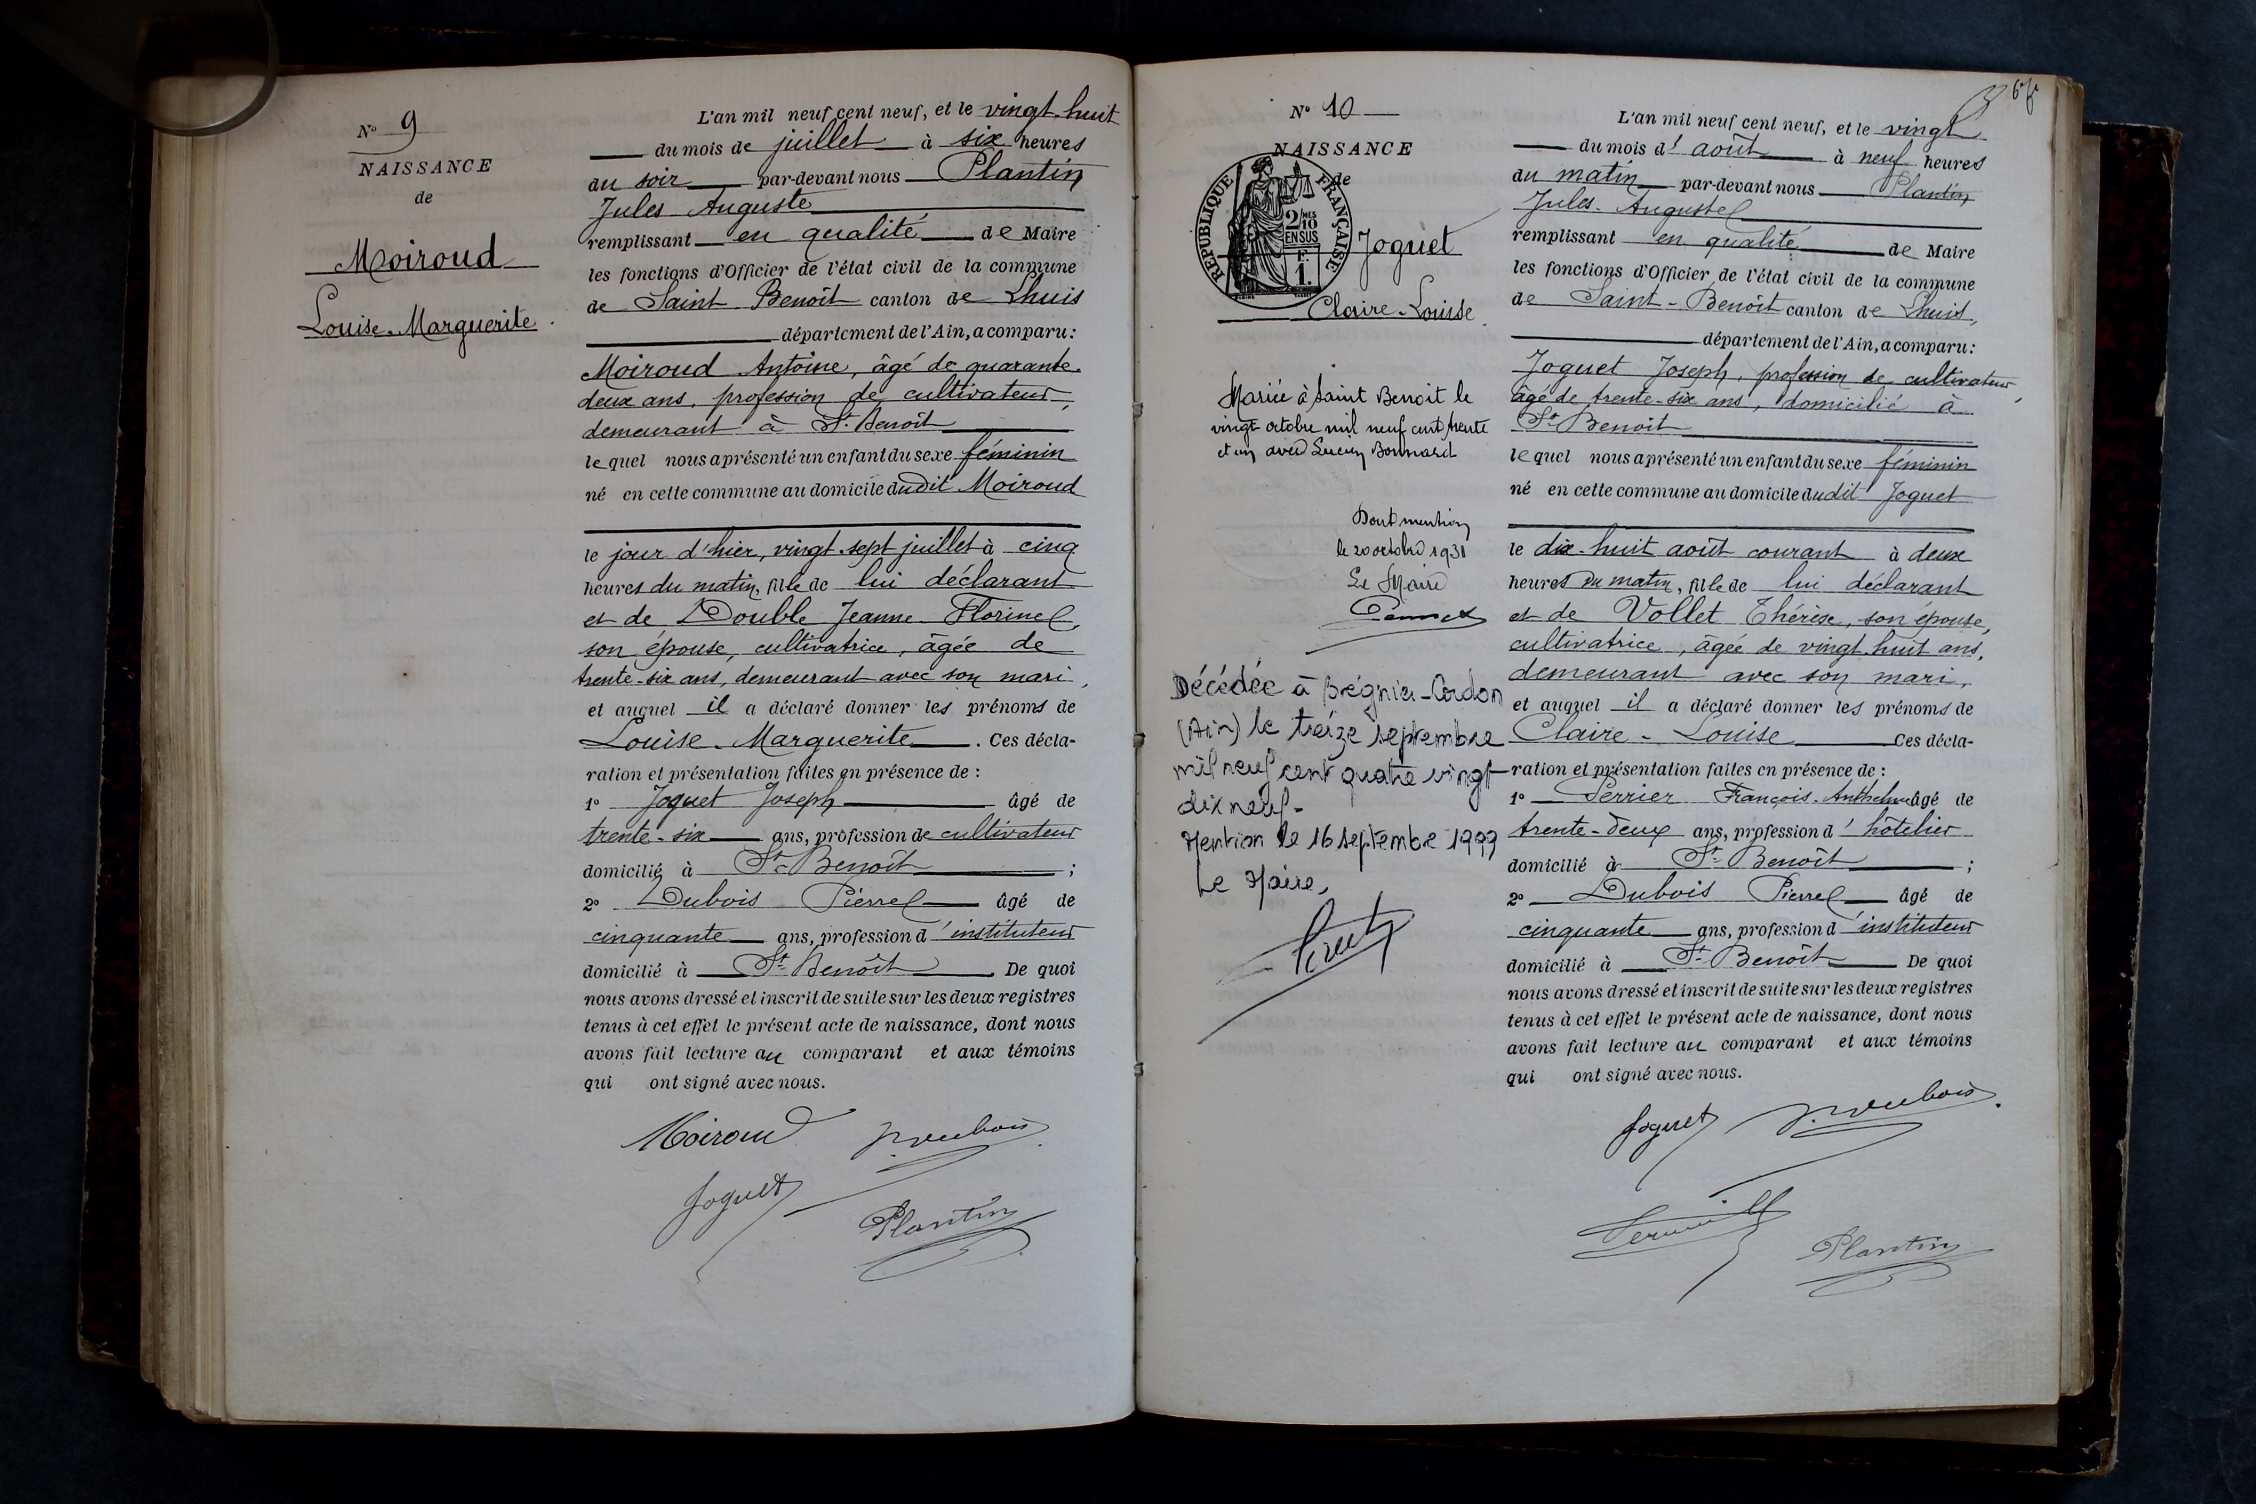 N° 9
NAISSANCE
de
Moiroud
Louise-Marguerite.
L'an mil neuf cent neuf, et le vingt-huit
du mois de juillet à six heures
du soir par-devant nous Plantin
Jules Auguste
remplissant en qualité de Maire
les fonctions d'Officier de l'état civil de la commune
de Saint Benoît canton de Lhuis
département de l'Ain, a comparu:
Moiroud Antoine, âgé de quarante-
deux ans, profession de cultivateur,
demeurant à St. Benoît
lequel nous a présenté un enfant du sexe féminin
né en cette commune au domicile dudit Moiroud
le jour d'hier, vingt-sept juillet à cinq
heures du matin, fille de lui déclarant
et de Double Jeanne-Florine,
son épouse, cultivatrice, âgée de
trente-six ans, demeurant avec son mari,
et auquel il a déclaré donner les prénoms de
Louise-Marguerite. Ces décla-
ration et présentation faites en présence de:
1° Joguet Joseph âgé de
trente-six ans, profession de cultivateur
domicilié à St-Benoît;
2° Dubois Pierre âgé de
cinquante ans, profession d'instituteur
domicilié à St-Benoît. De quoi
nous avons dressé et inscrit de suite sur les deux registres
tenus à cet effet le présent acte de naissance, dont nous
avons fait lecture au comparant et aux témoins
qui ont signé avec nous.
Moiroud P. Dubois
Joguet
Plantin
N° 10
NAISSANCE
de
RÉPUBLIQUE FRANÇAISE
2/10 MES
EN SUS
Fr.
1.
Joguet
Claire-Louise.
Mariée à Saint Benoit le
vingt octobre mil neuf cent trente
et un avec Lucien Bonnard
Dont mention
le 20 octobre 1931
Le Maire
Décédée à Brégnier-Cordon
(Ain) le treize septembre
mil neuf cent quatre vingt
dix neuf-
Mention le 16 septembre 1999
Le Maire,
L'an mil neuf cent neuf, et le vingt
du mois d'août à neuf heures
du matin par-devant nous Plantin
Jules-Auguste
remplissant en qualité de Maire
les fonctions d'Officier de l'état civil de la commune
de Saint-Benoît canton de Lhuis,
département de l'Ain, a comparu:
Joguet Joseph, profession de cultivateur,
âgé de trente-six ans, domicilié à
St Benoît
lequel nous a présenté un enfant du sexe féminin
né en cette commune au domicile dudit Joguet
le dix-huit août courant à deux
heures du matin, fille de lui déclarant
et de Vollet Thérèse, son épouse,
cultivatrice, âgée de vingt-huit ans,
demeurant avec son mari,
et auquel il a déclaré donner les prénoms de
Claire-Louise Ces décla-
ration et présentation faites en présence de:
1° Perrier François-Anthelme âgé de
trente-deux ans, profession d'hôtelier
domicilié à St-Benoît;
2° Dubois Pierre âgé de
cinquante ans, profession d'instituteur
domicilié à St-Benoît De quoi
nous avons dressé et inscrit de suite sur les deux registres
tenus à cet effet le présent acte de naissance, dont nous
avons fait lecture au comparant et aux témoins
qui ont signé avec nous.
Joguet P. Dubois.
Plantin